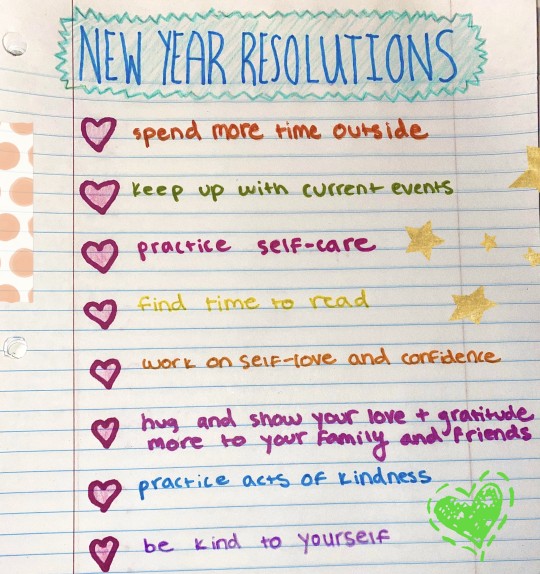 NEW YEAR RESOLUTIONS
spend more time outside
keep up with current events
practice self-care
find time to read
work on self-love and confidence
hug and show your love + gratitude
more to your family and friends
practice acts of kindness
be kind to yourself